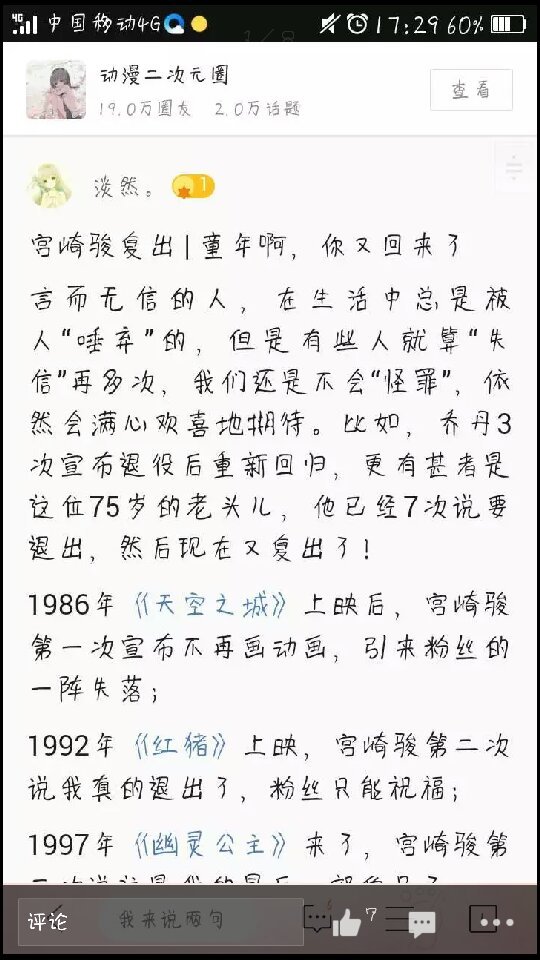 中国移动4G 17:29 60%
1/8
动漫二次元圈
19.0万圈友 2.0万话题
查看
淡然。 1
宫崎骏复出|童年啊，你又回来了
言而无信的人，在生活中总是被
人“唾弃”的，但是有些人就算“失
信”再多次，我们还是不会“怪罪”，依
然会满心欢喜地期待。比如，乔丹3
次宣布退役后重新回归，更有甚者是
这位75岁的老头儿，他已经7次说要
退出，然后现在又复出了！
1986年《天空之城》上映后，宫崎骏
第一次宣布不再画动画，引来粉丝的
一阵失落；
1992年《红猪》上映，宫崎骏第二次
说我真的退出了，粉丝只能祝福；
1997年《幽灵公主》来了，宫崎骏第
评论
我来说两句
7